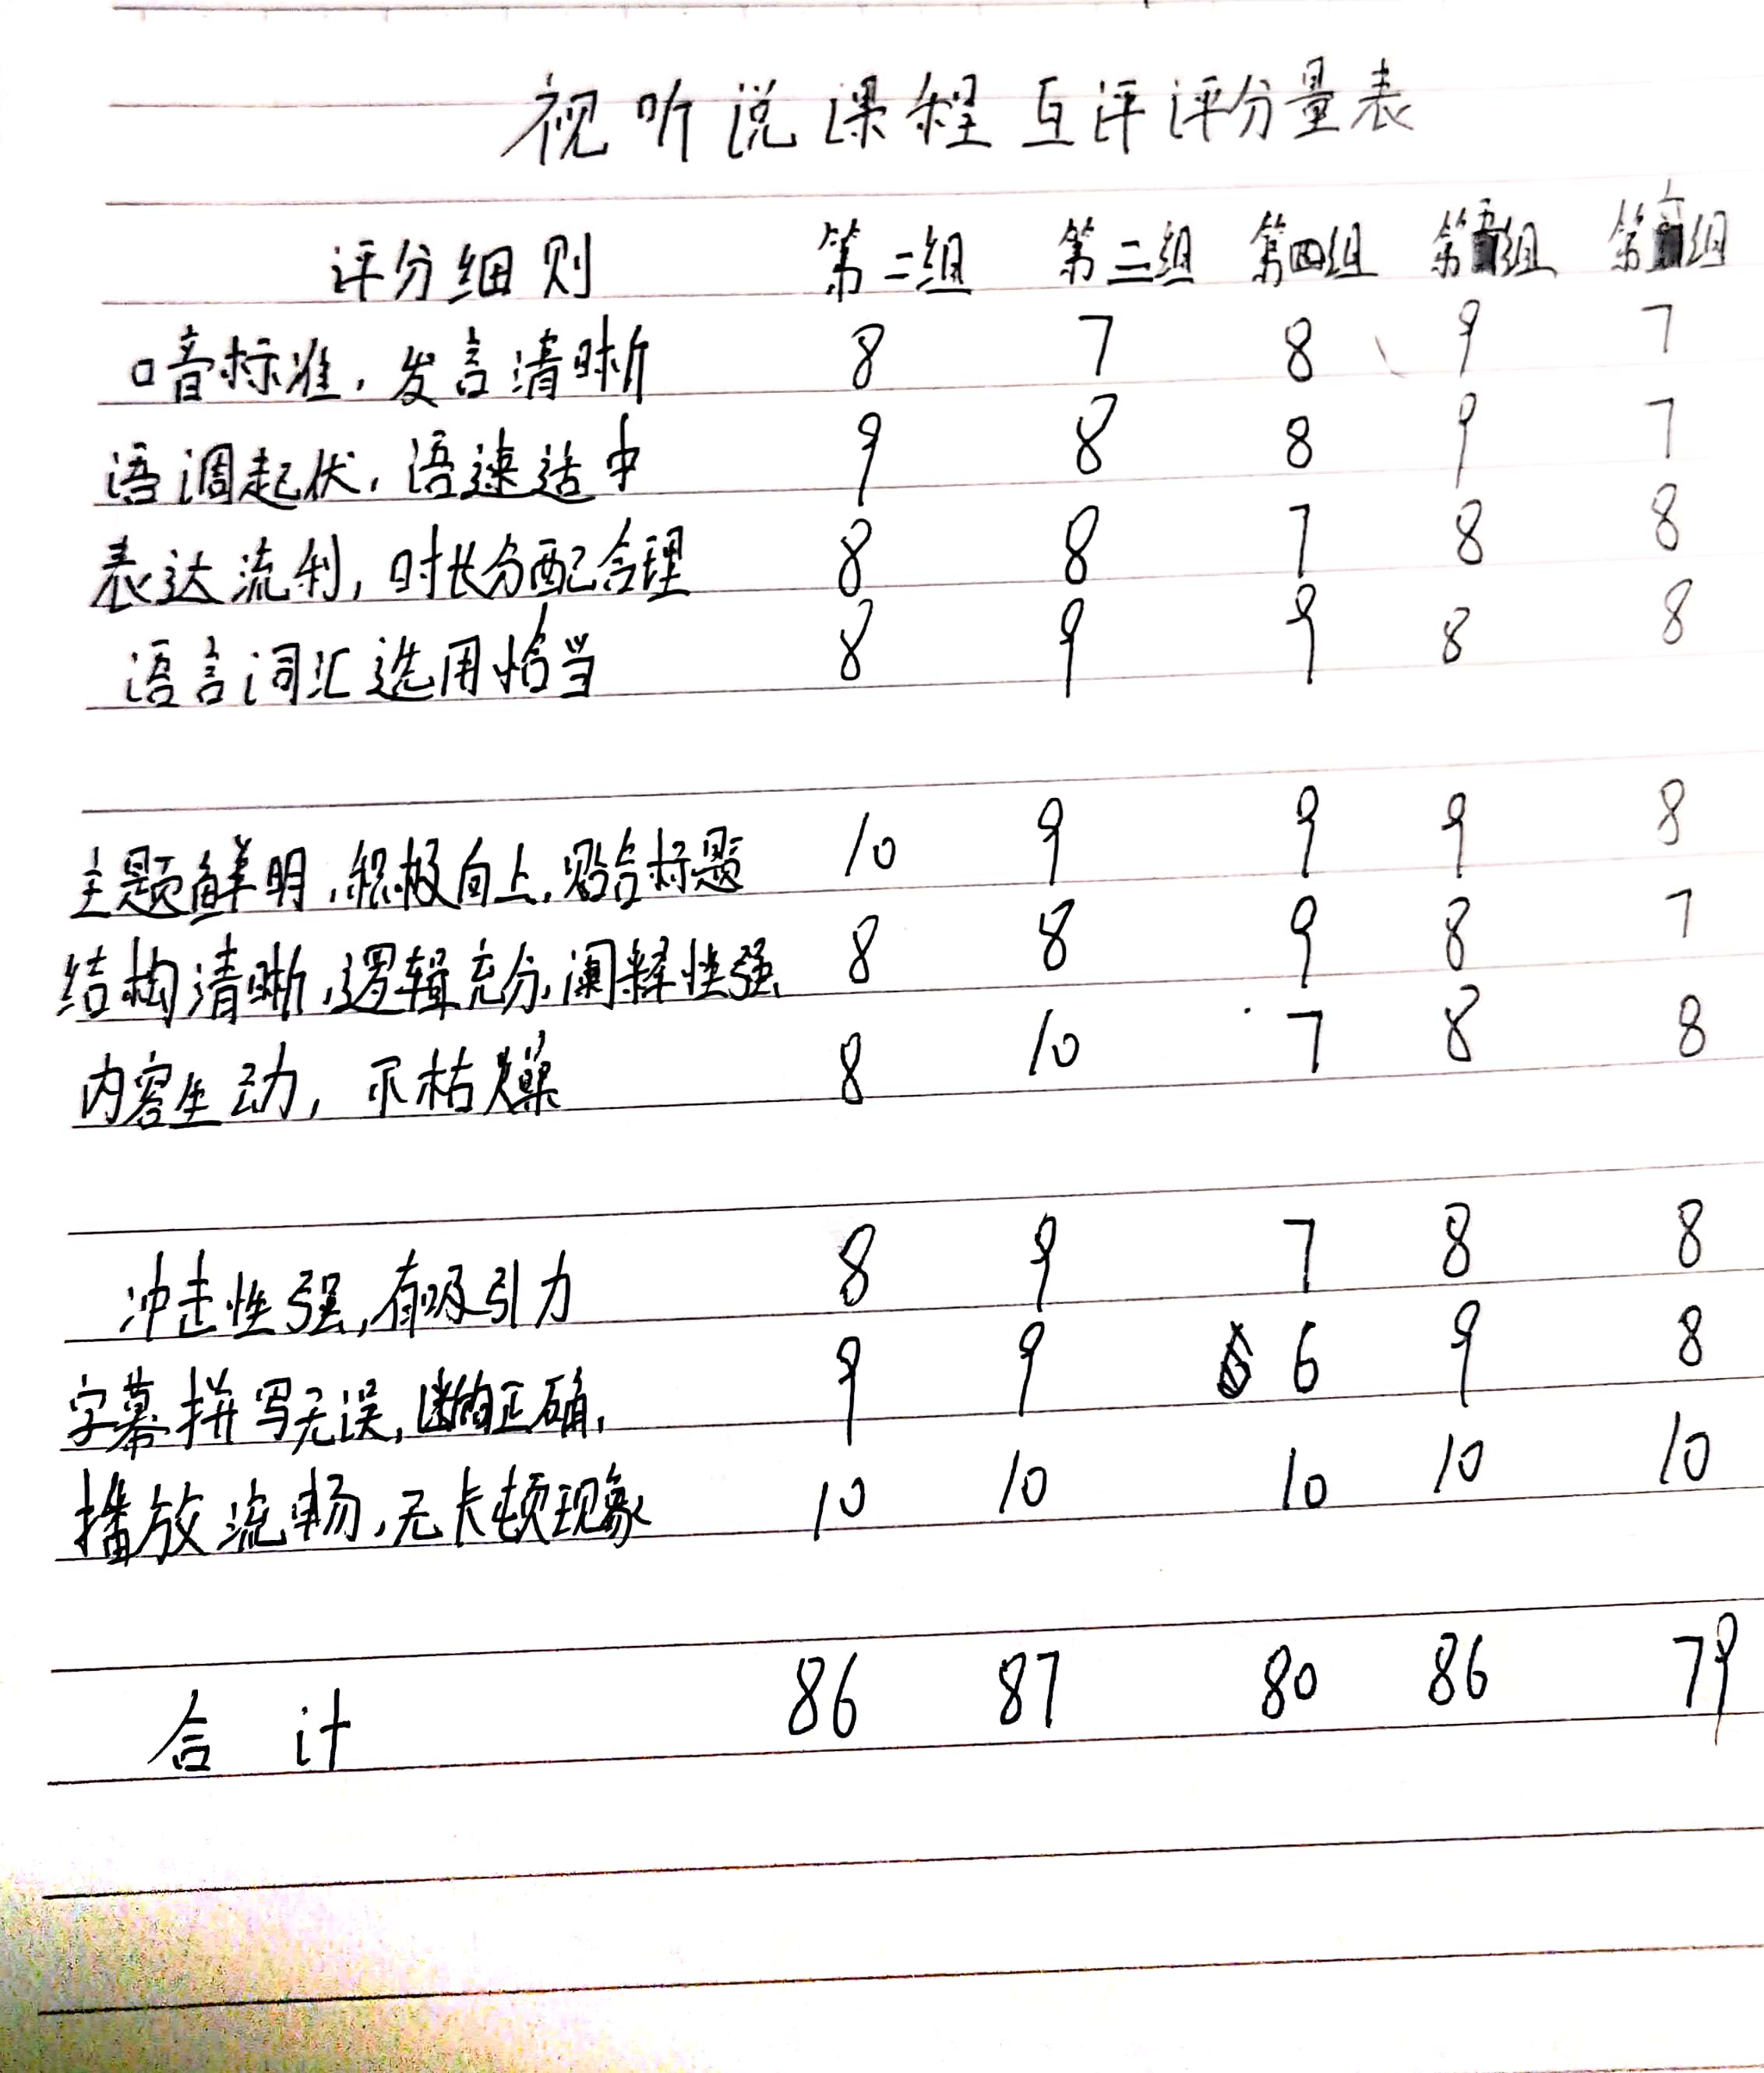 视听说课程互评评分量表
评分细则 第二组 第三组 第四组 第五组 第六组
口音标准，发言清晰 8 7 8 9 7
语调起伏，语速适中 9 8 8 9 7
表达流利，时长分配合理 8 8 7 8 8
语言词汇选用恰当 8 9 9 8 8
主题鲜明，积极向上，贴合标题 10 9 9 9 8
结构清晰，逻辑充分，阐释性强 8 8 9 8 7
内容生动，不枯燥 8 10 7 8 8
冲击性强，有吸引力 8 9 7 8 8
字幕拼写无误，断句正确， 9 9 6 9 8
播放流畅，无卡顿现象 10 10 10 10 10
合计 86 87 80 86 79